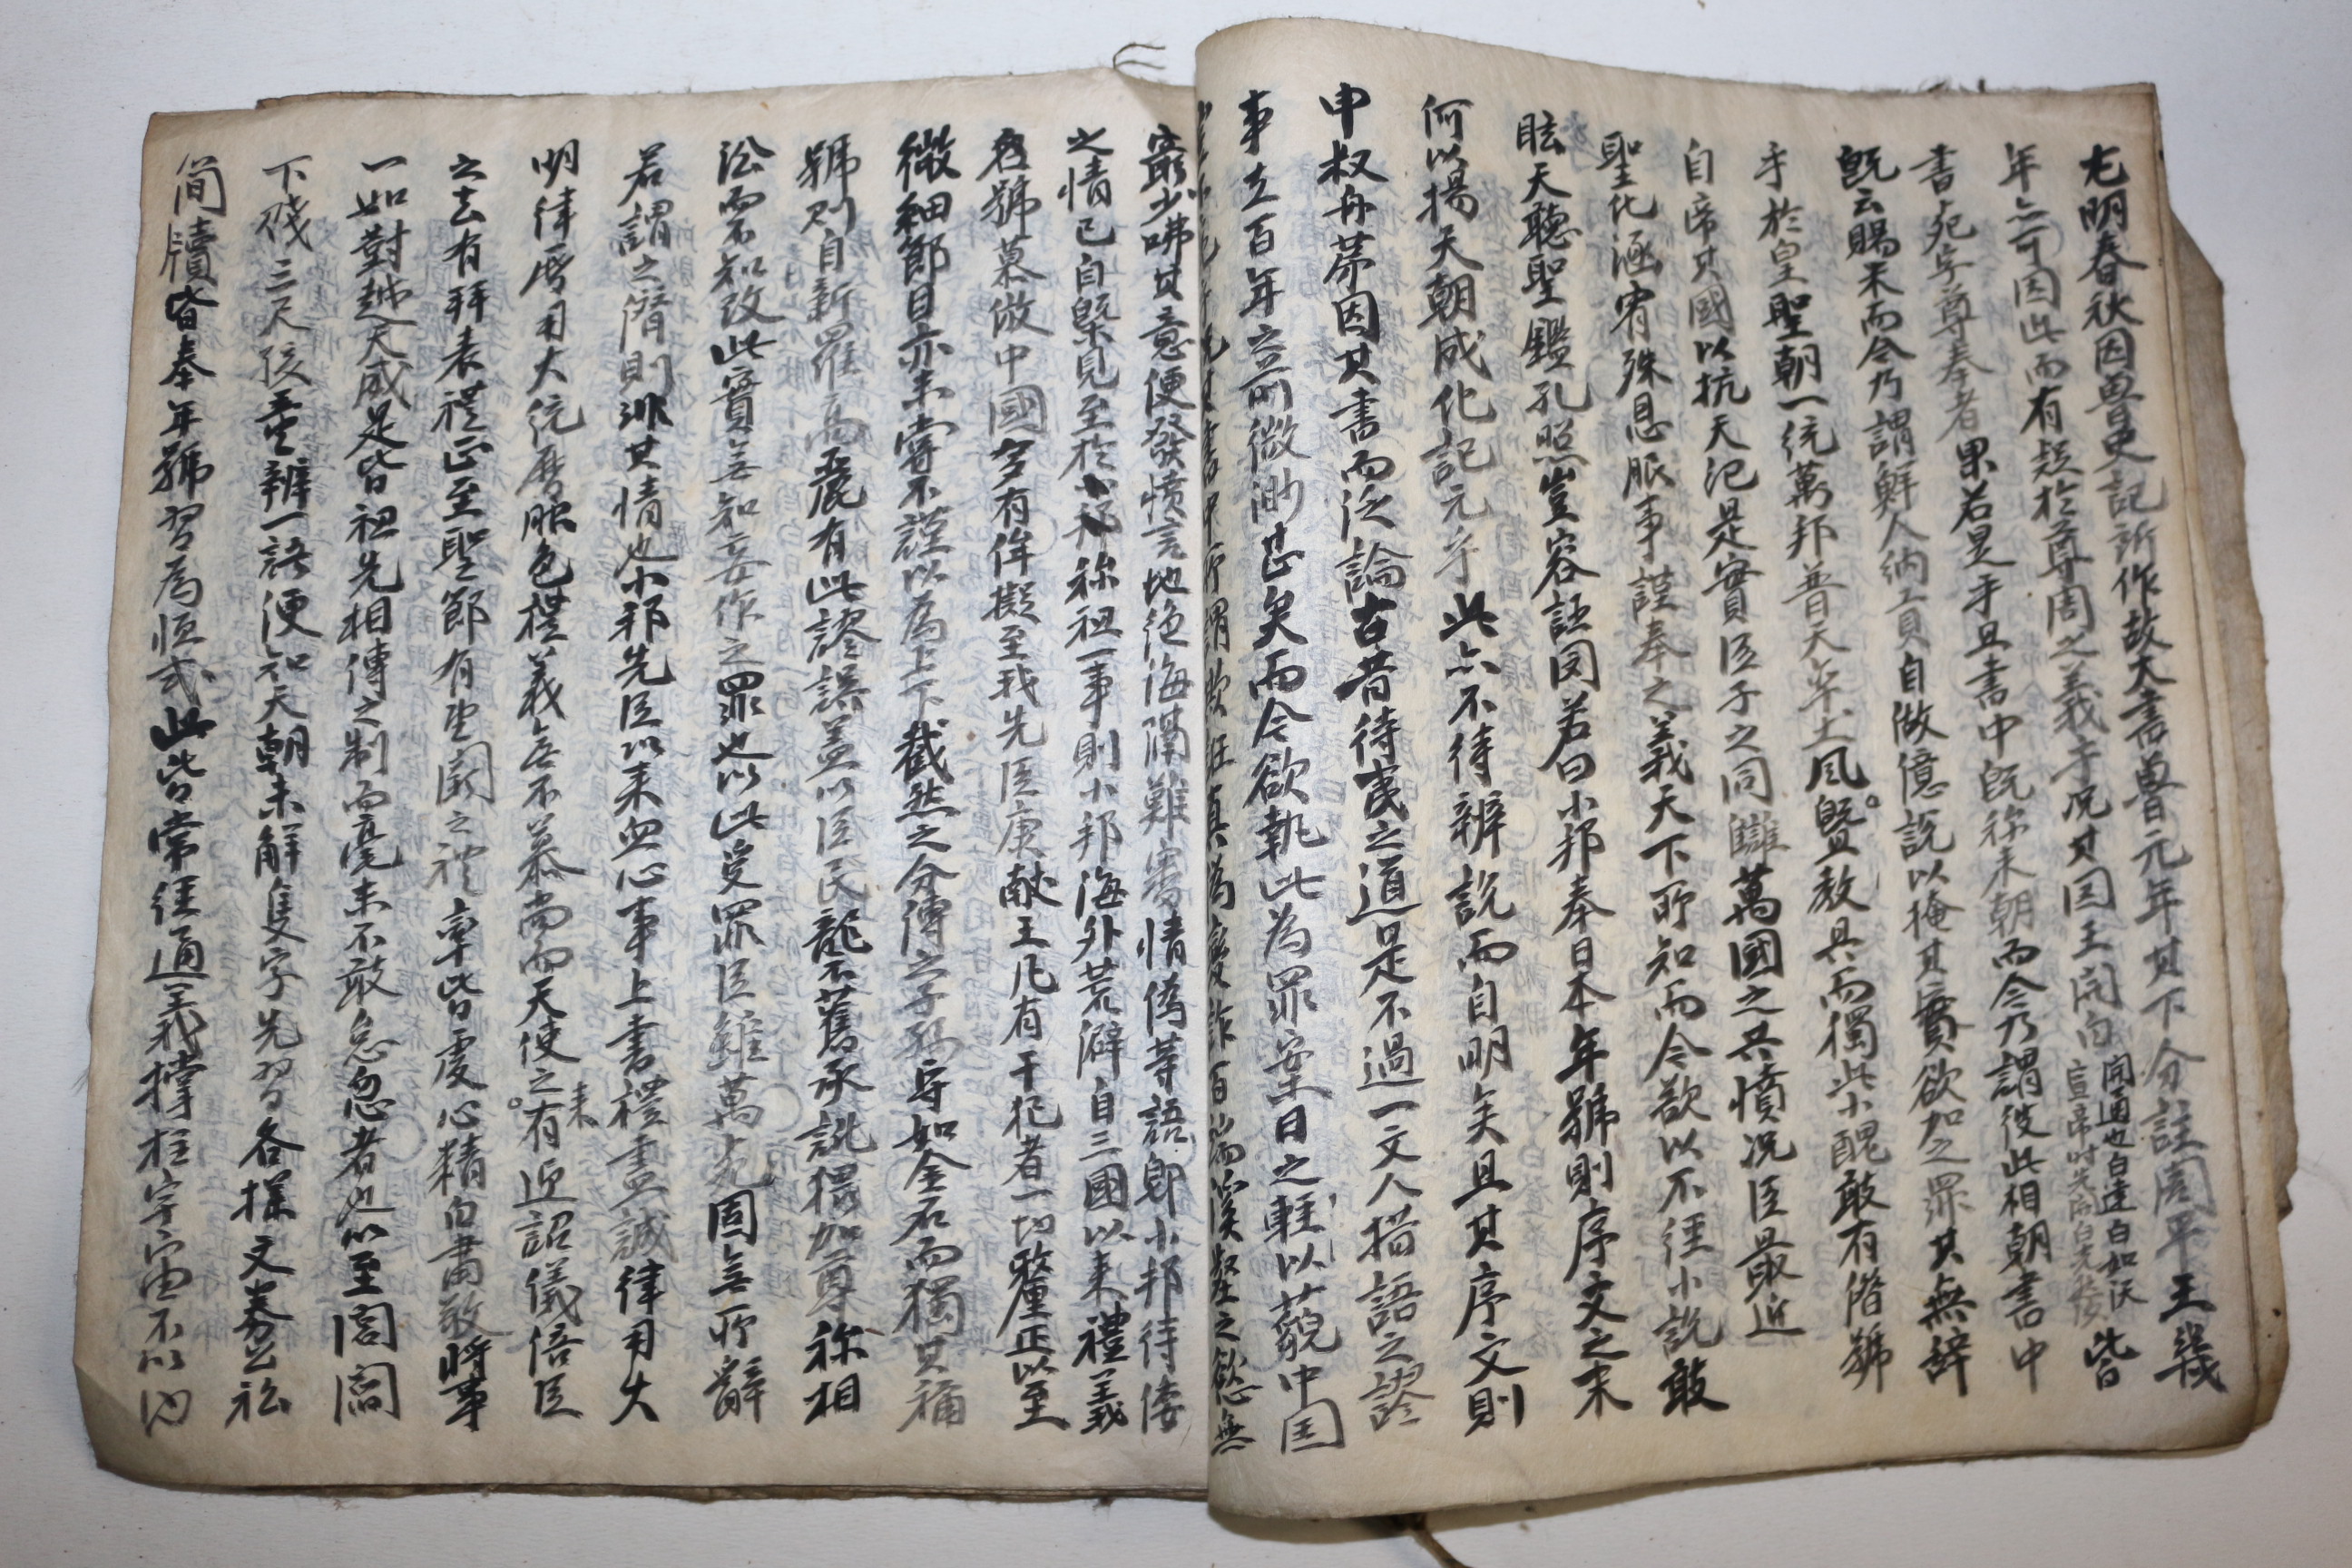 尤明春秋因魯史記所作故大書魯元年其下分註周平王幾
年亦可因此而有疑於尊周之義乎况其国王開白開通也白達白如沃宣帝時先啓白光後皆
書死字尊奉者果若是乎且書中旣称来朝而今乃謂彼此相朝書中
旣云賜米而今乃謂鮮人納貢自做億說以掩其實欲加之罪其無辞
乎於皇聖朝一統萬邦普天率土風曁敎具而獨此小醜敢有僭號
自帝其國以抗天紀是實臣子之同讎萬國之共憤况臣最近
聖化涵宥殊恩服事謹奉之義天下所知而今欲以不經小說敢
眩天聽聖鑑孔照豈容誣罔若曰小邦奉日本年號則序文之末
何以揭天朝成化記元乎此亦不待辨說而自明矣且其序文則
申叔舟䓁因其書而泛論古昔待夷之道是不過一文人措語之謬
事在百年之前微渺甚矣而今欲執此為罪案日之輕以藐中国
窮少咈其意便發憤言地絶海隅難審情僞等語卽小邦待倭
之情已自槩見至於小邦称祖一事則小邦海外荒僻自三國以来禮義
名號慕倣中國多有侔擬至我先臣康献王凡有干犯者一切釐正以至
微細節目亦未嘗不謹以為上下截然之分傳之子孫守如金石而獨其称
號則自新羅高麗有此謬誤盖以臣民襲舊承訛猥加尊称相
沿而不知改此實無知妄作之罪也以此受罪臣雖萬死固無所辭
若謂之僭則非其情也小邦先臣以来血心事上書禮盡誠律用大
明律曆用大統曆服色禮義無不慕尚而天使之来有迎詔儀倍臣
之去有拜表禮正至聖節有望闕之禮率皆虔心精白肅敬將事
一如對越天威是皆祖先相傳之制而毫未不敢怠忽者也以至閭閻
下賎三尺孩童辨一語便知天朝未解隻字先習各様文券公私
簡牘皆奉年號習為恒式此皆常經通義撑柱宇宙不以內